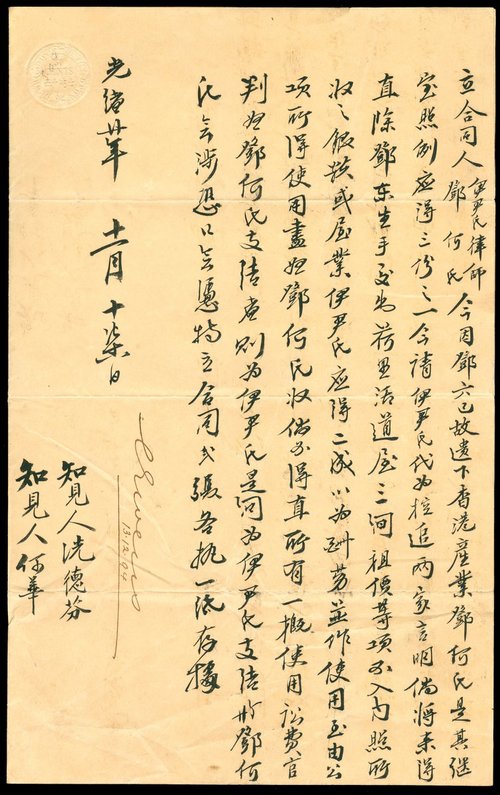 立合同人伊尹氏律師
鄧何氏今因鄧六已故遺下香港產業鄧何氏是其継
室照例應得三份之一今請伊尹氏代為控追兩家言明倘將來得
直除鄧東生手受為荷里活道屋三間租價等項不入內照所
收之銀錢或屋業伊尹氏應得二成以為酧勞並作使用至由公
項所得使用盡如鄧何氏收倘不得直所有一概使用訟費官
判如鄧何氏支結者則為伊尹氏是問為伊尹氏支結於鄧何
氏無涉恐口無憑特立合同弍張各執一紙存據
光緒廿年 十一月 十柒日
知見人冼德芬
知見人何華